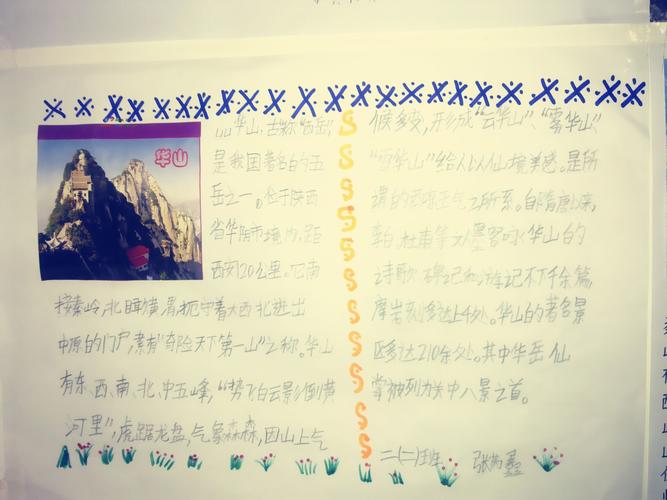 华山
华山,古称"西岳",
是我国著名的五
岳之一。位于陕西
省华阴市境内,距
西安120公里。它南
接秦岭,北瞰黄渭,扼守着大西北进出
中原的门户,素有"奇险天下第一山"之称。华山
有东、西、南、北、中五峰,"势飞白云影倒黄
河里",虎踞龙盘,气象森森,因山上气
候多变,形成"云华山"、"雾华山"、
"雪华山"给人以仙境美感。是所
谓的西京王气之所系。自隋唐以来,
李白、杜甫等文人墨客咏华山的
诗歌、碑记和游记不下千余篇,
摩岩刻多达上千处。华山的著名景
区多达210余处。其中华岳仙
掌被列为关中八景之首。
二(二)班 张